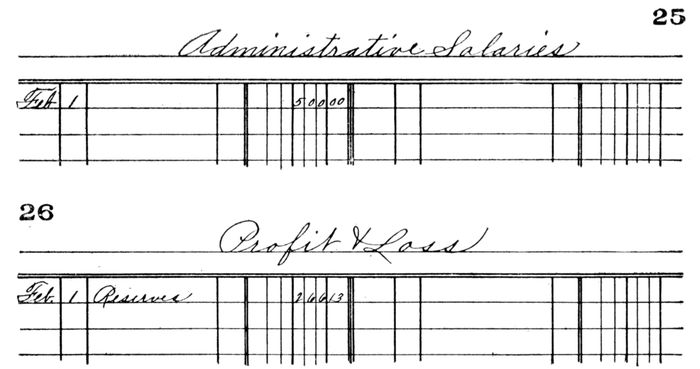 25
Administrative Salaries
Feb 1 50000
26
Profit & Loss
Feb. 1 Reserves 26613